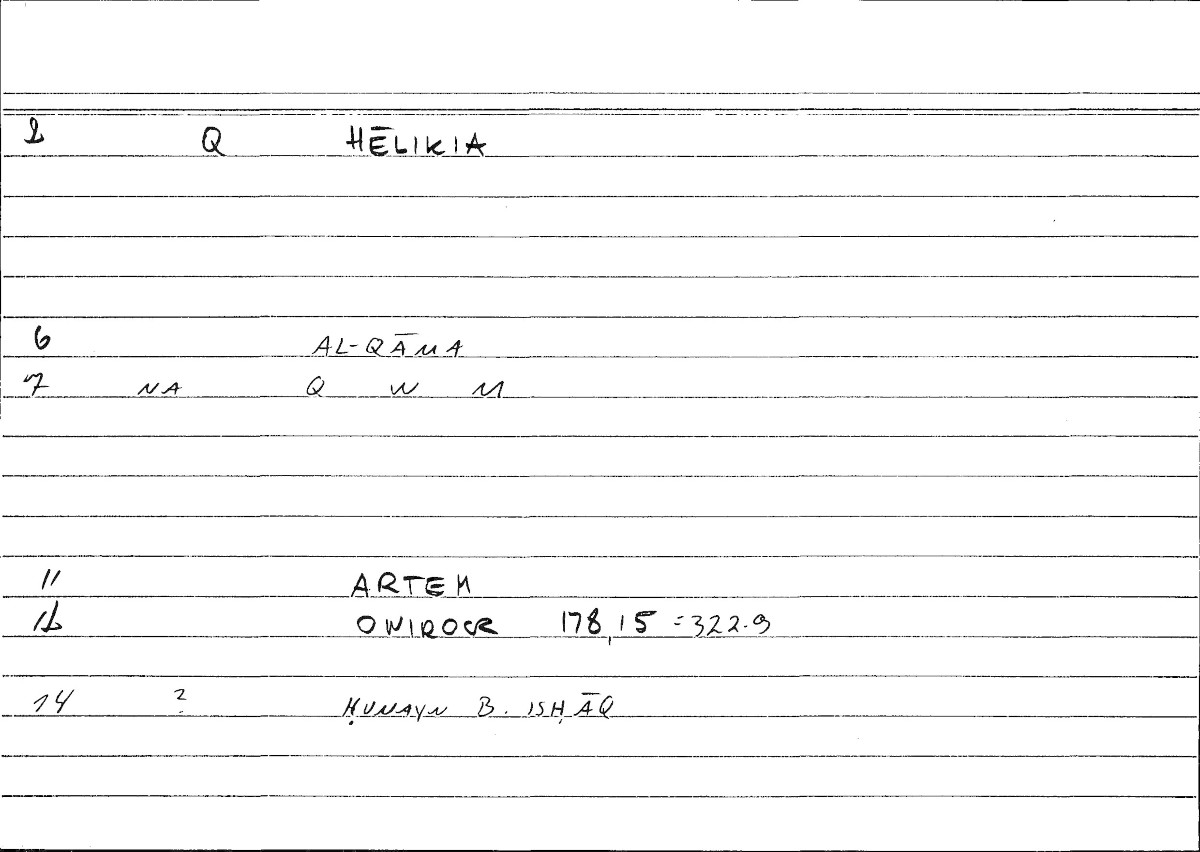 2 Q HĒLIKIA
6 AL-QĀMA
7 NA Q W M
11 ARTEM
12 ONIROCR 178,15 = 322.9
14 ? ḤUNAYN B. ISḤĀQ